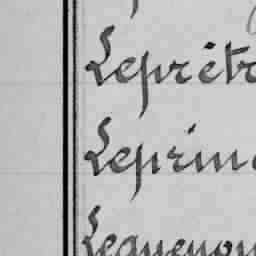 Leprêtr
Leprin
Lequenou